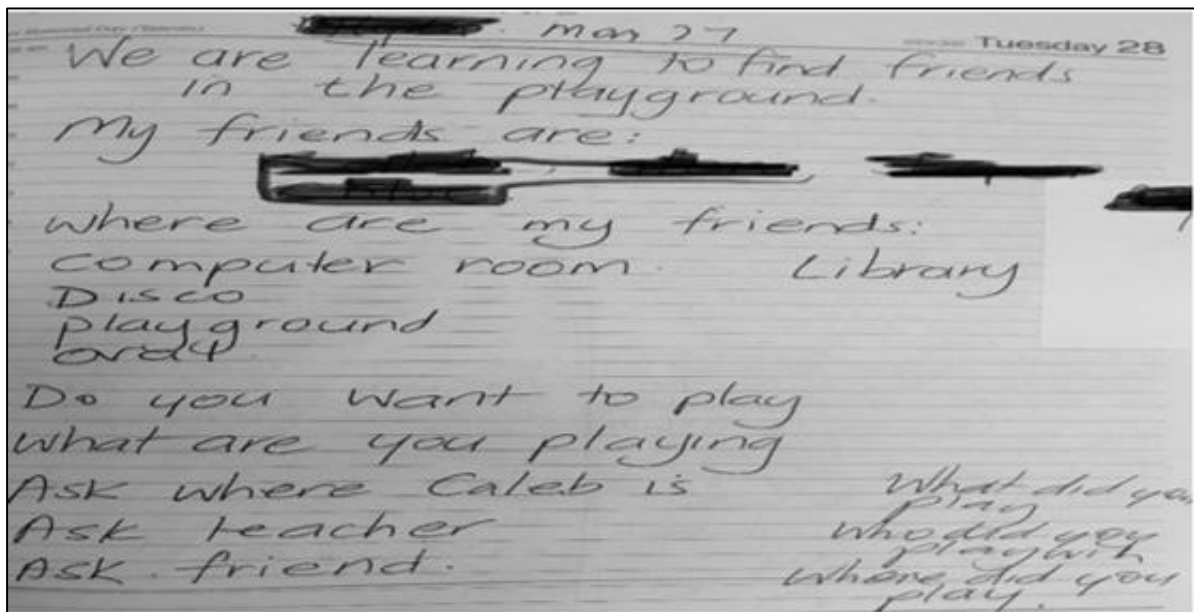 Mon 27
Tuesday 28
We are learning to find friends
in the playground.
My friends are:
where are my friends:
computer room. Library
Disco
playground
Do you want to play
What are you playing
Ask where Caleb is
Ask teacher
Ask friend.
What did you
play
who did you
play with
where did you
play.